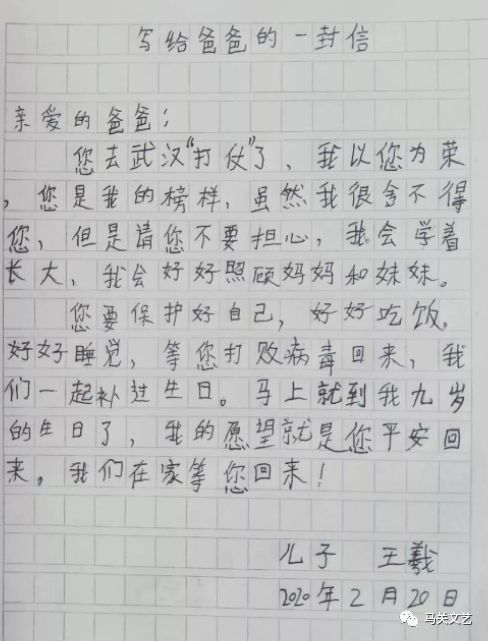 写给爸爸的一封信
亲爱的爸爸：
您去武汉“打仗”了、我以您为荣
，您是我的榜样，虽然我很舍不得
您，但是请您不要担心，我会学着
长大、我会好好照顾妈妈和妹妹。
您要保护好自己，好好吃饭，
好好睡觉，等您打败病毒回来，我
们一起补过生日。马上就到我九岁
的生日了，我的愿望就是您平安回
来，我们在家等您回来！
儿子 王羲
2020年2月20日
马关文艺